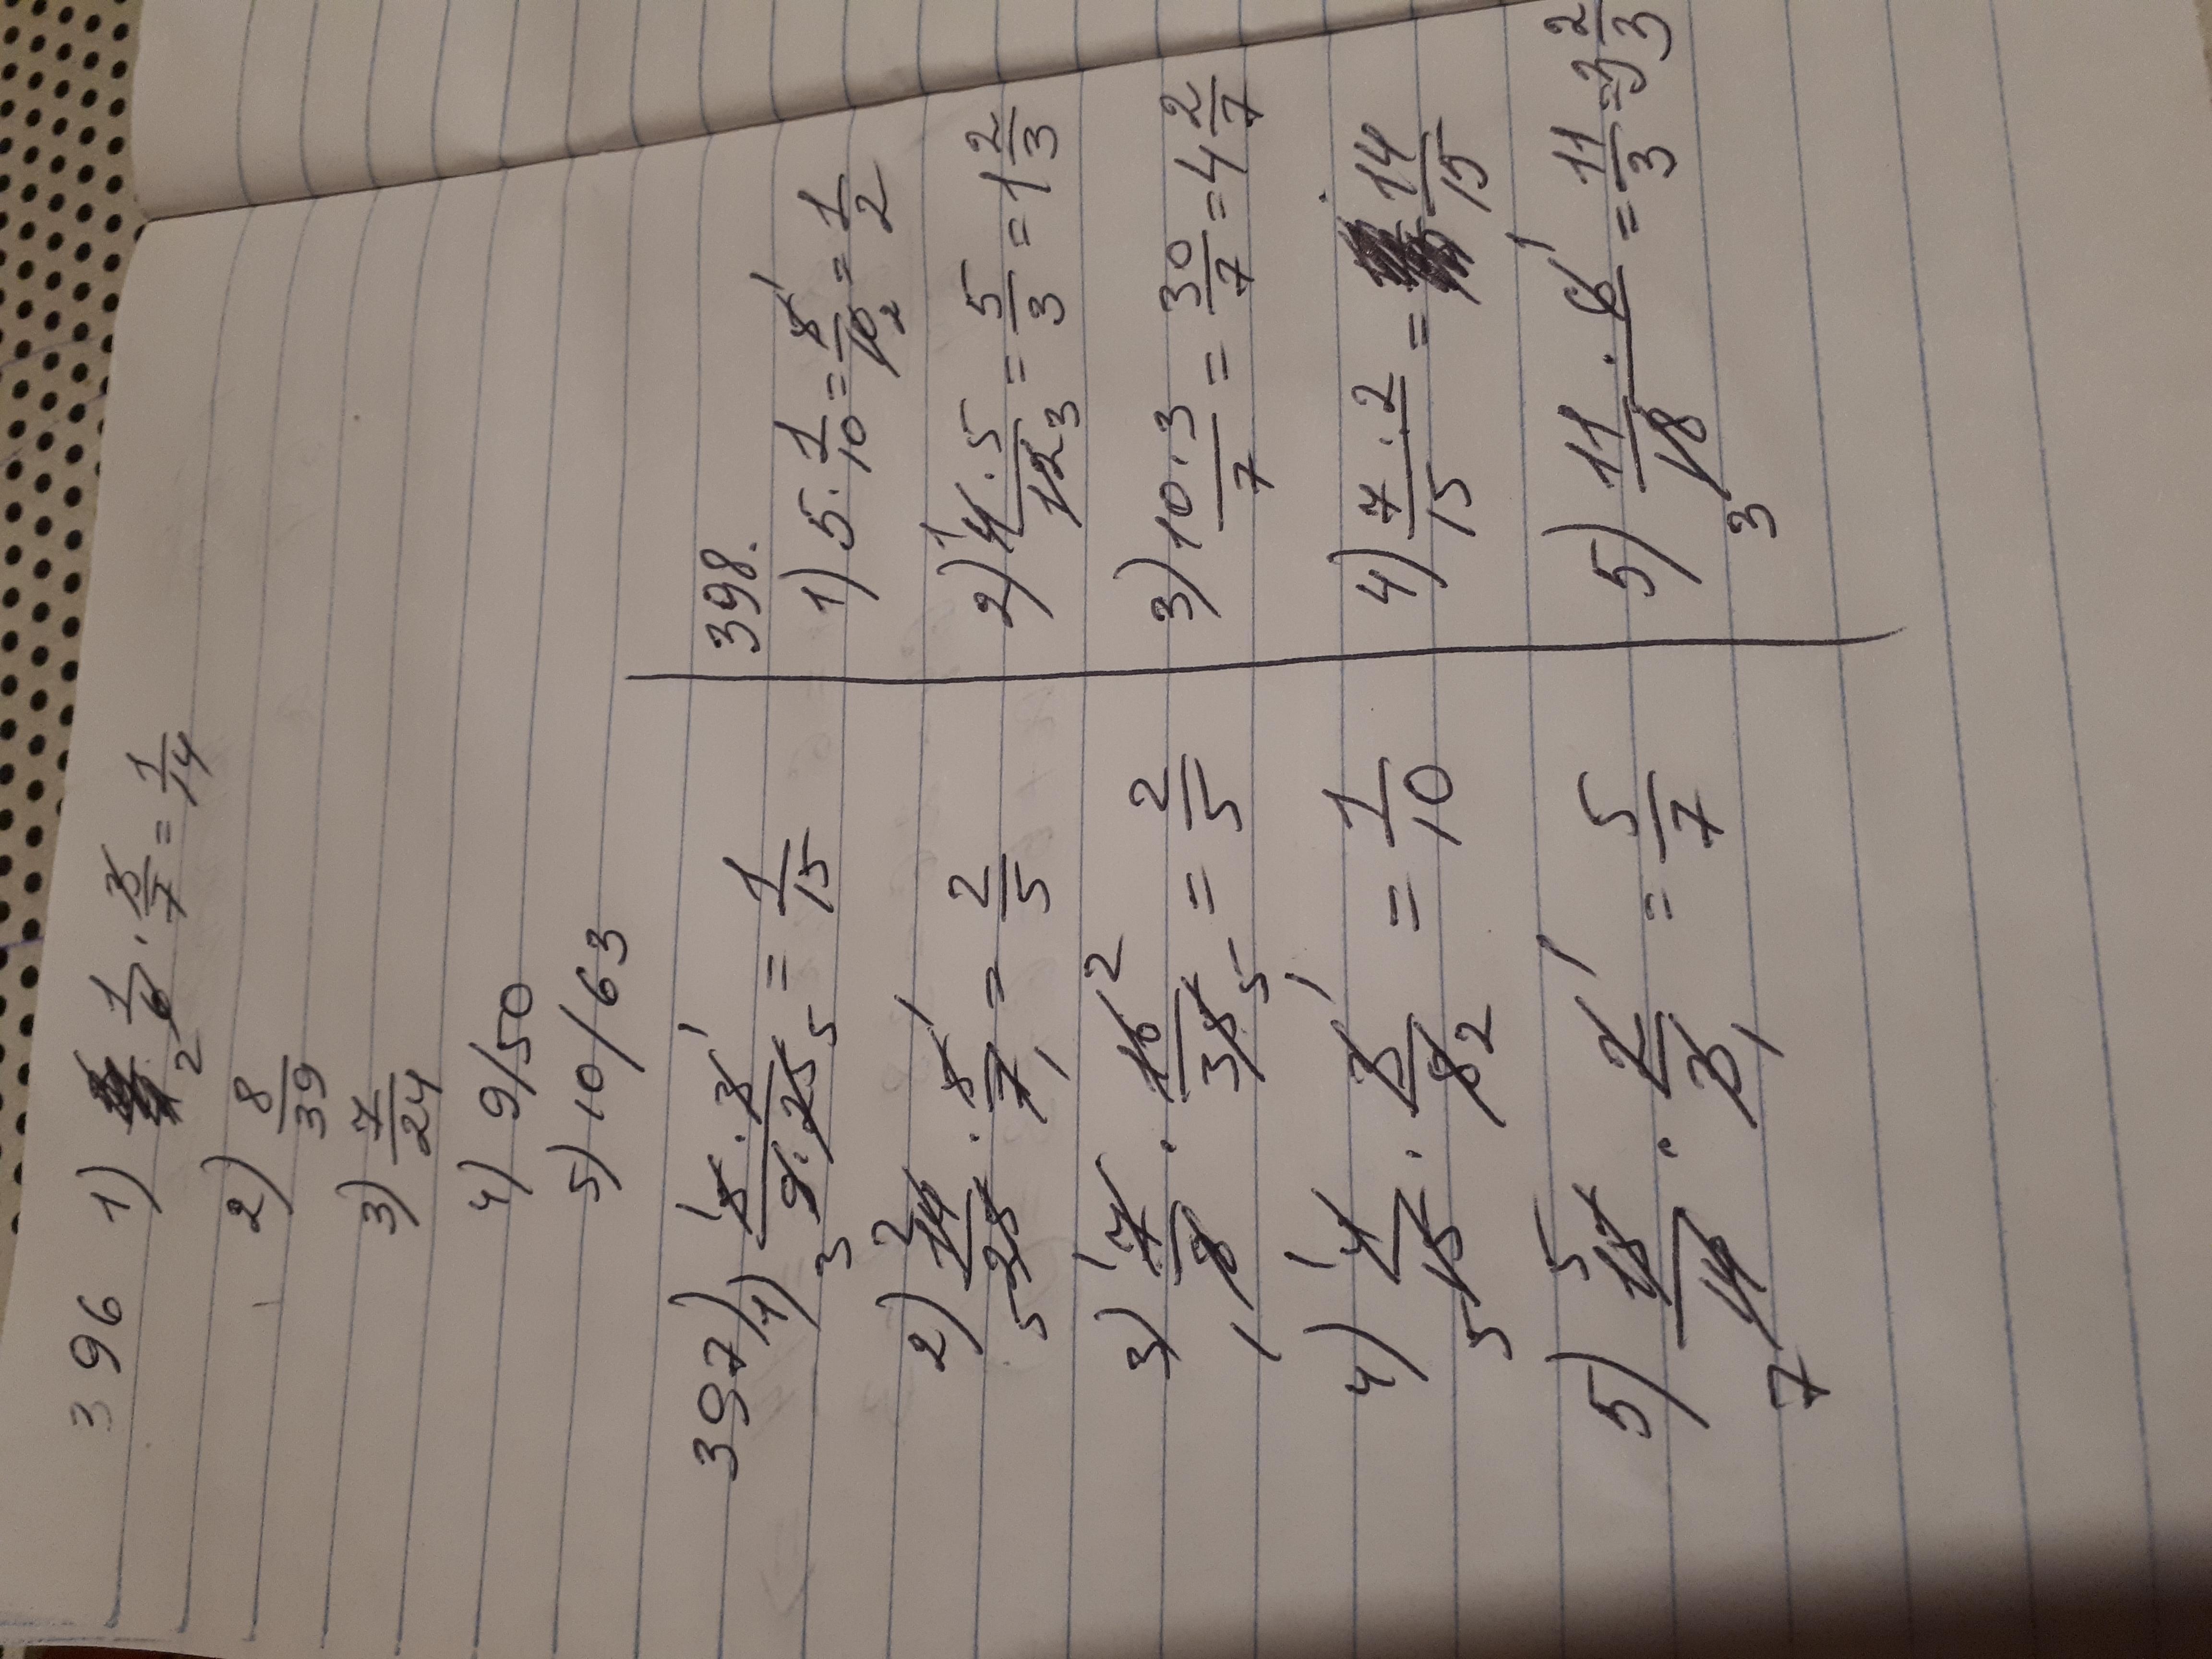 396 1) 1/6 2 · 3/7 = 1/14
2) 8/39
3) 7/24
4) 9/50
5) 10/63
397) 1) 1 5 · 3 1 / 3 9 · 25 5 = 1/15
2) 2 14/25 5 · 5 1/7 1 = 2/5
3) 1 7/8 1 · 16 2/35 5 = 2/5
4) 1 4/15 5 · 3 1/8 2 = 1/10
5) 5 15/14 7 · 2 1/3 1 = 5/7
398.
1) 5 · 1/10 = 5 1/10 2 = 1/2
2) 1 4 · 5/12 3 = 5/3 = 1 2/3
3) 10 · 3/7 = 30/7 = 4 2/7
4) 7 · 2/15 = 14/15
5) 11 · 6 1/18 3 = 11/3 = 3 2/3